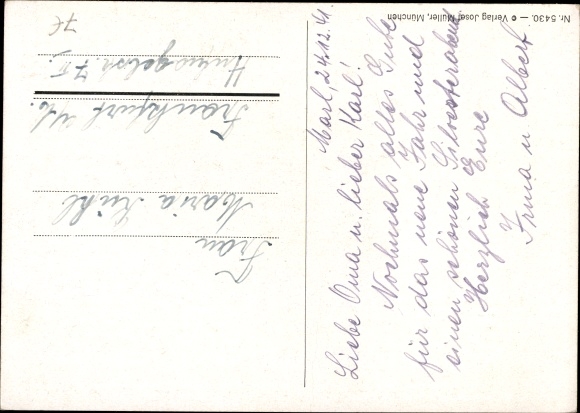 Marl, 24.12.41.
Liebe Oma u. lieber Karl!
Nochmals alles Gute
für das neue Jahr und
einen schönen Silvesterabend
Herzlich Eure
Irma u Albert
Frau
Maria
Frankfurt a/M.
Nr. 5430. — © Verlag Josef Müller, München